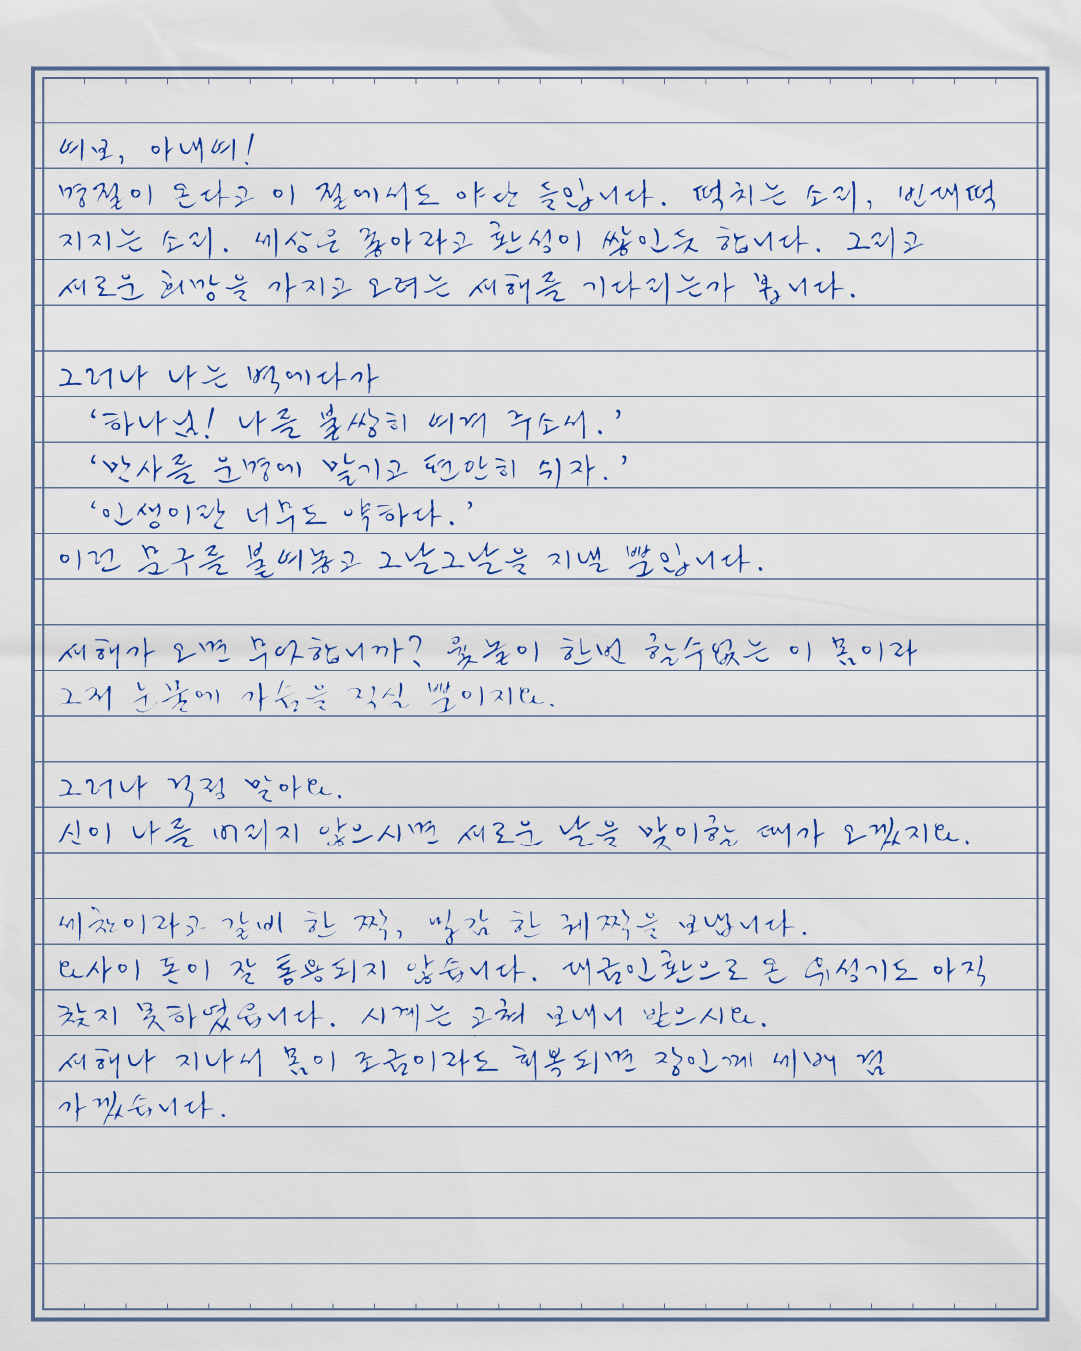 여보, 아내여!
명절이 온다고 이 절에서도 야단 들입니다. 떡치는 소리, 빈대떡
지지는 소리. 세상은 좋아라고 환성이 쌓인듯 합니다. 그리고
새로운 희망을 가지고 오려는 새해를 기다리는가 봅니다.
그러나 나는 벽에다가
'하나님! 나를 불쌍히 여겨 주소서.'
'만사를 운명에 맡기고 편안히 쉬자.'
'인생이란 너무도 약하다.'
이런 문구를 붙여놓고 그날그날을 지낼 뿐입니다.
새해가 오면 무엇합니까? 윷놀이 한번 할수없는 이 몸이라
그저 눈물에 가슴을 적실 뿐이지요.
그러나 걱정 말아요.
신이 나를 버리지 않으시면 새로운 날을 맞이할 때가 오겠지요.
세찬이라고 갈비 한 짝, 밀감 한 궤짝을 보냅니다.
요사이 돈이 잘 통용되지 않습니다. 대금인환으로 온 유성기도 아직
찾지 못하였습니다. 시계는 고쳐 보내니 받으시요.
새해나 지나서 몸이 조금이라도 회복되면 장인께 세배 겸
가겠습니다.